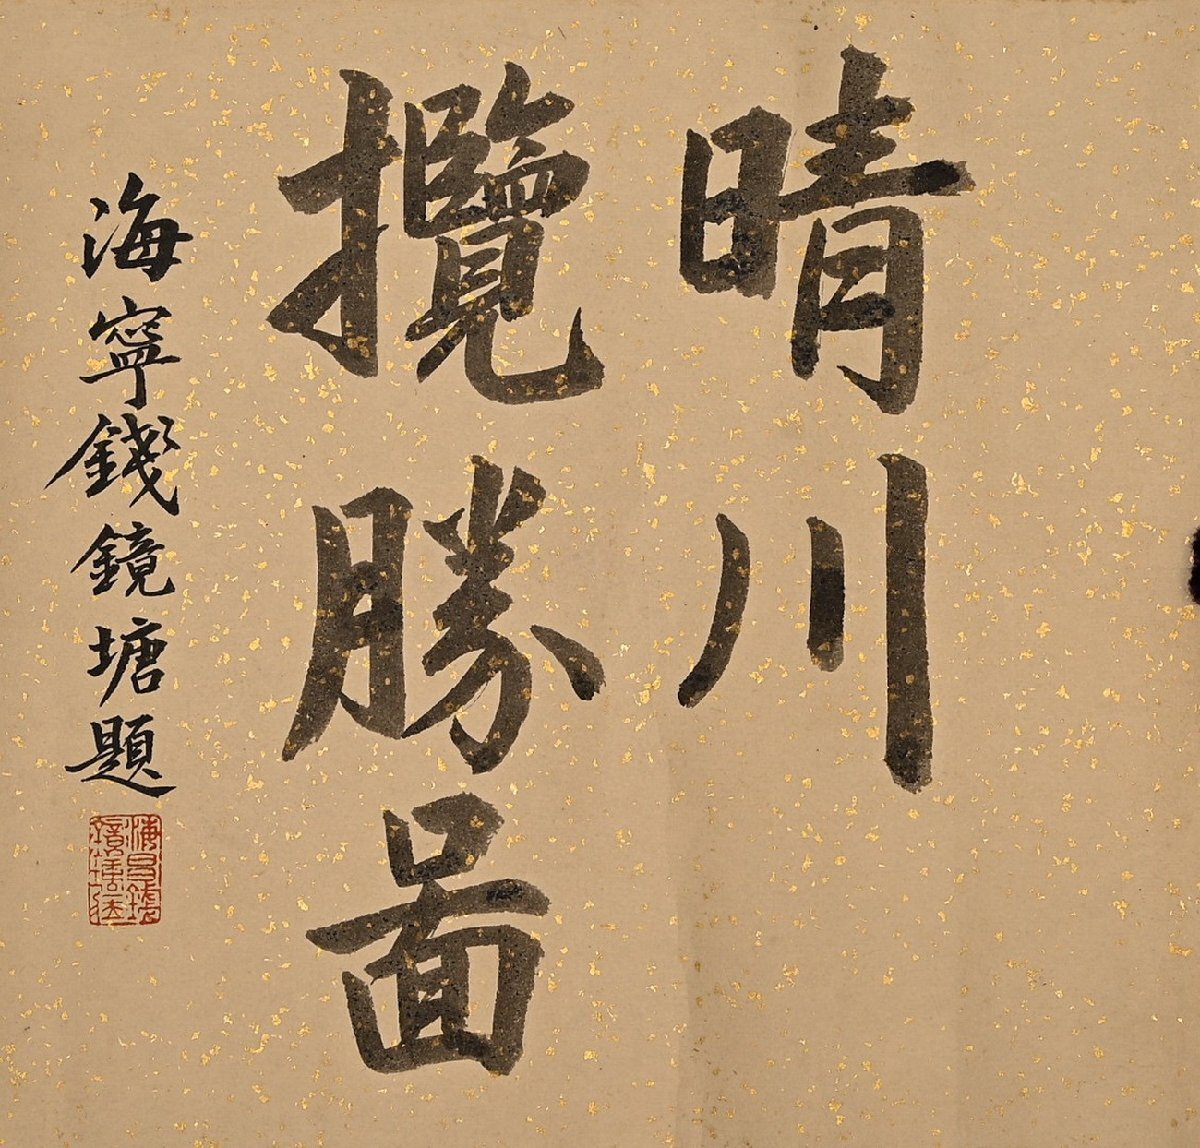 晴川
攬勝圖
海寧錢鏡塘題